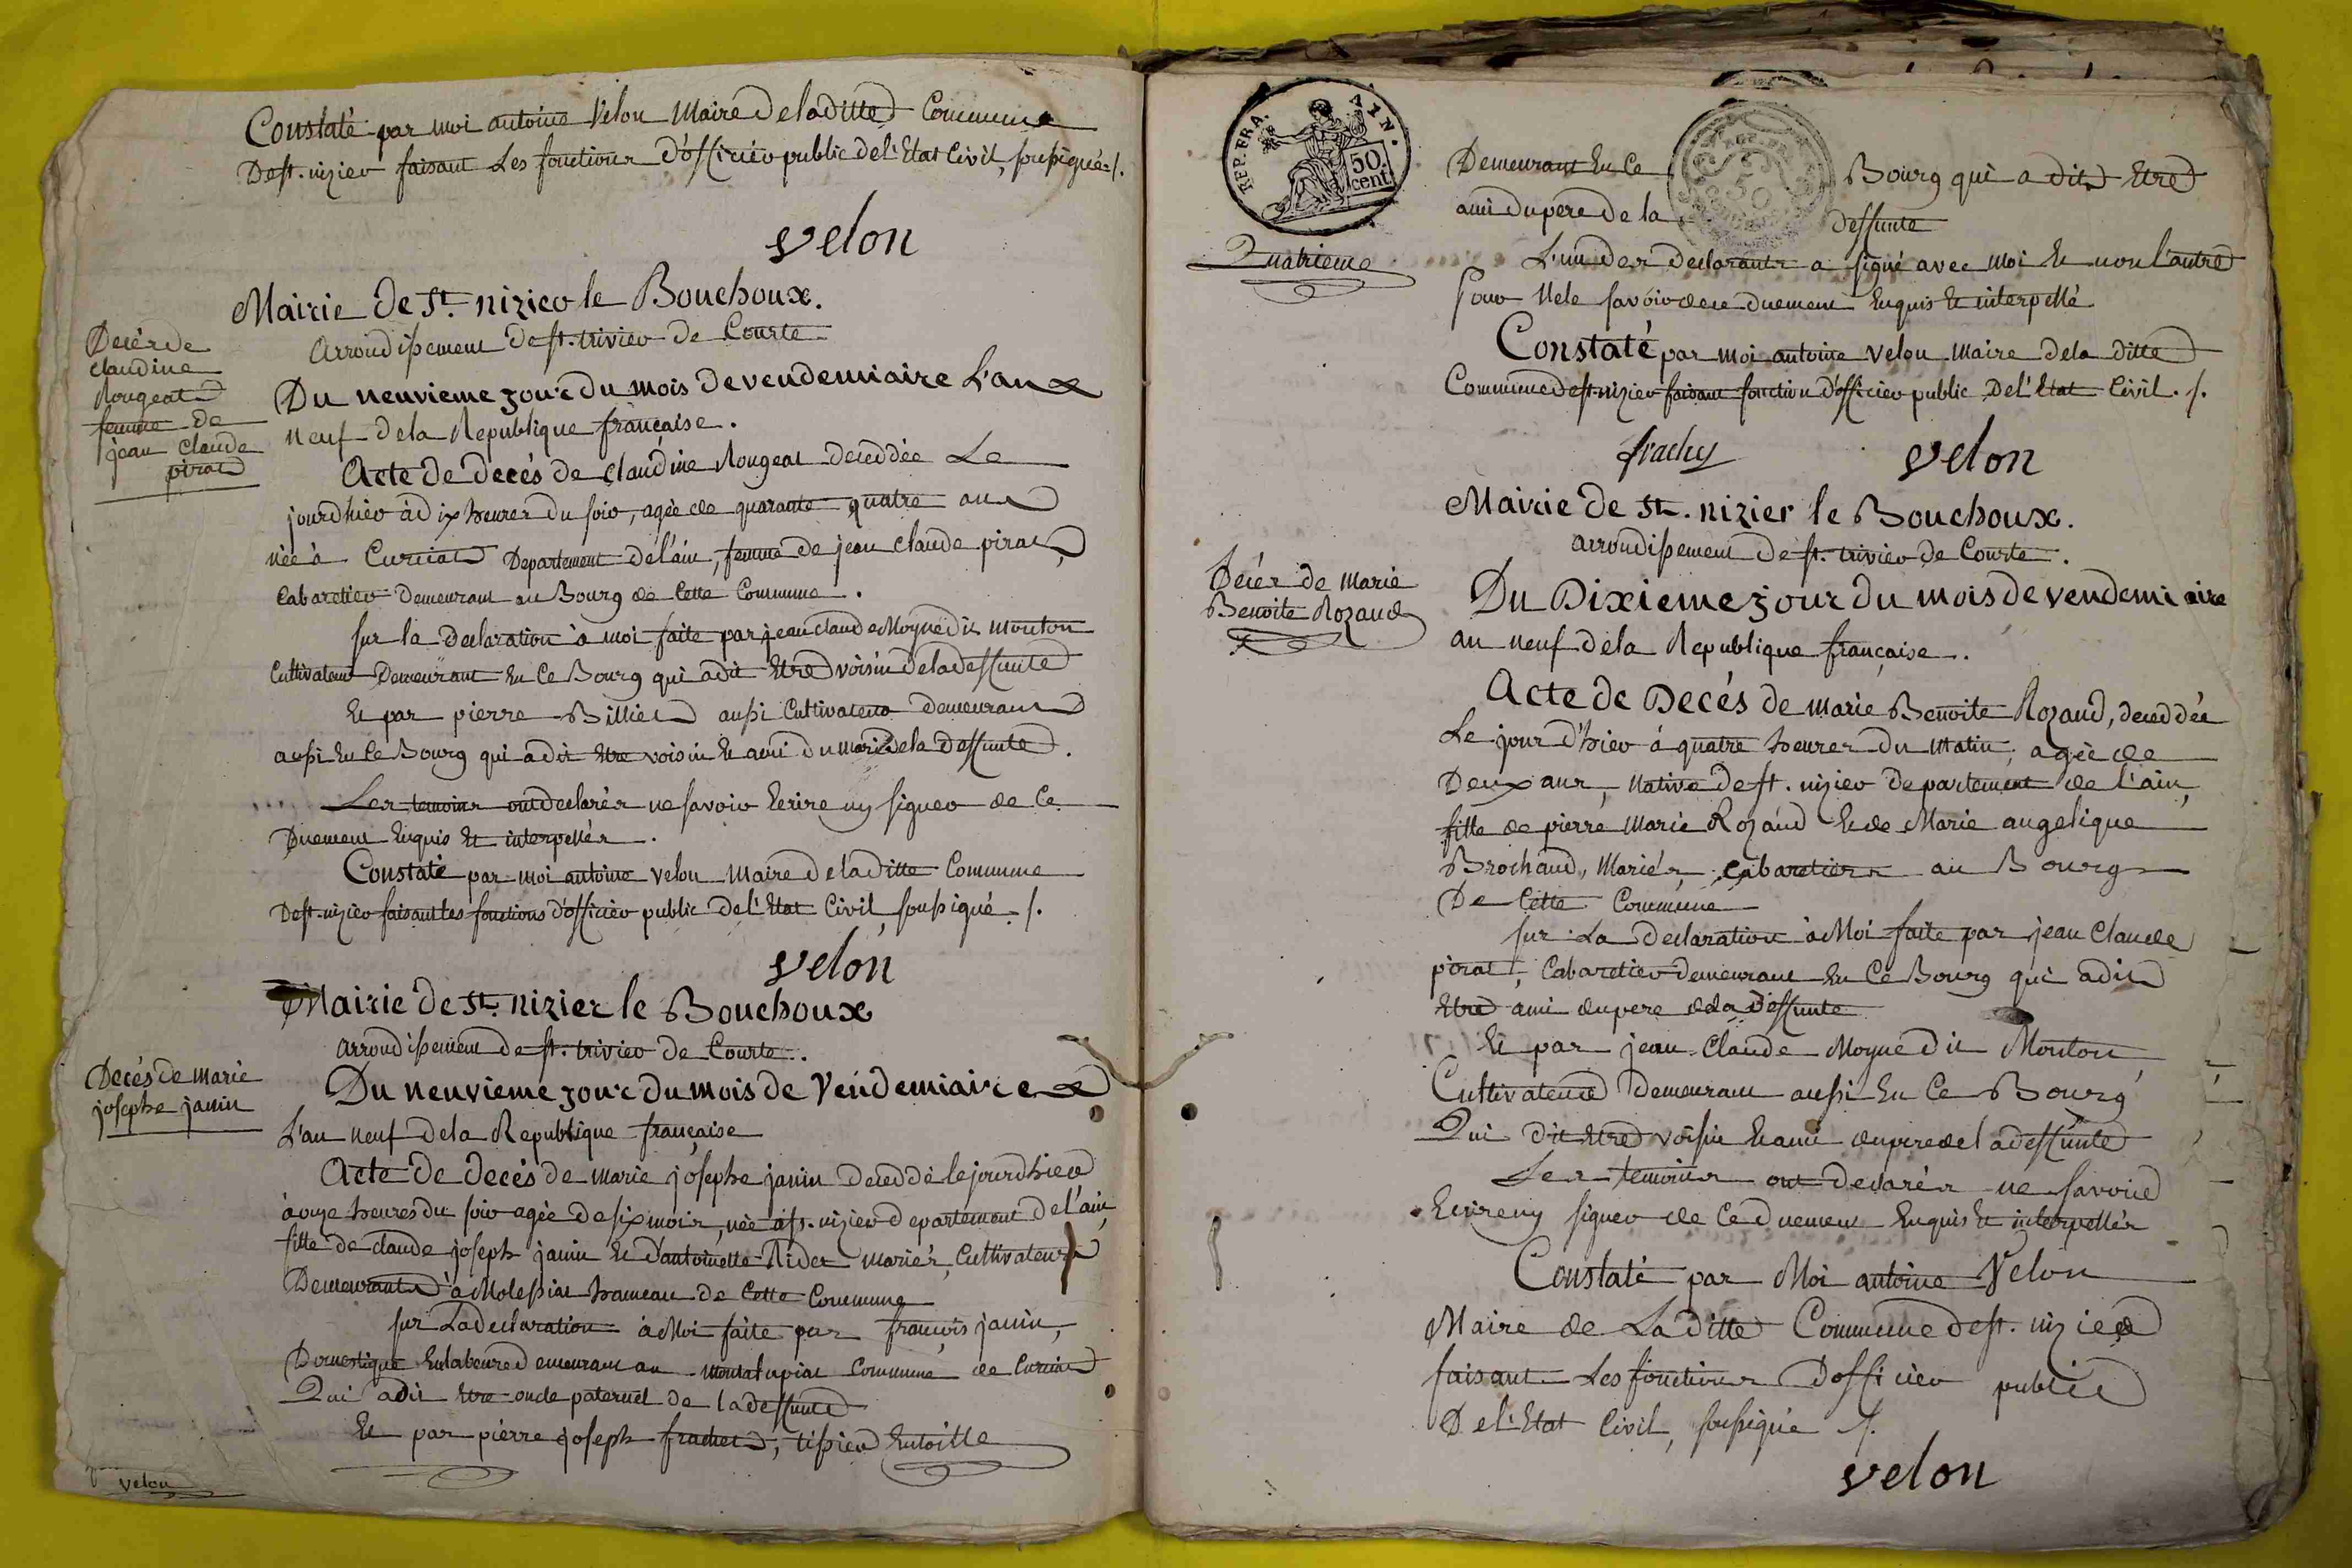 Constaté par moi antoine Velon Maire De la ditte Commune
De st. nizier faisant Les fonctions D'officier public de l'Etat Civil, soussigné ./.
velon
Mairie de St. nizier le Bouchoux.
Arrondissement De st. trivier de Courte
Decés de
claudine
Rougeat
femme de
jean Claude
pirat
Du neuvieme jour du mois de vendemiaire L'an
neuf de la Republique française.
Acte de decés de claudine Rougeat deceddée Le
jourdhier à dix heures du soir, agée de quarante quatre ans
née à Curciat Departement de l'ain, femme de jean claude pirat,
Cabaretier Demeurant au Bourg de Cette Commune.
sur la Declaration à moi faite par jean claude Moyne dit mouton
Cultivateur Demeurant En Ce Bourg qui a dit Etre voisin de la deffunte
Et par pierre Billiet aussi Cultivateur Demeurant
aussi En Ce Bourg qui a dit Etre voisin Et ami du mari de la Deffunte.
Les temoins ont declarés ne savoir Ecrire ny signer de Ce
Duement Enquis Et interpellés.
Constaté par moi antoine velon Maire de la ditte Commune
De st. nizier faisant les fonctions d'officier public de l'Etat Civil soussigné ./.
velon
Mairie de St. nizier le Bouchoux
arrondissement de st. trivier de Courte.
Decés de marie
josephe janin
Du neuvieme jour du mois de Vendemiaire
L'an neuf de la Republique française
Acte de decés de marie josephe janin deceddé le jourdhier
à onze heures du soir agée de six mois, née à st. nizier departement de l'ain,
fille de claude joseph janin Et d'antoinette Nides mariés, Cultivateurs
Demeurants à Molessiat hameau de Cette Commune
sur La declaration à Moi faite par françois janin,
Domestique Demeurant au Commune de Curciat
Qui a dit Etre oncle paternel de la deffunte
Et par pierre joseph frachet, tissier En toille
velon
REP. FRA.
AIN.
50.
cent.
Quatrieme
Demeurant En Ce Bourg qui a dit Etre
ami du pere de la deffunte
L'un des declarants a signé avec moi Et non l'autre
pour Ne le savoir de ce duement Enquis Et interpellé
Constaté par moi antoine Velon Maire de la ditte
Commune de st. nizier faisant fonction d'officier public De l'Etat Civil. ./.
frachy velon
Mairie de St. nizier le Bouchoux.
arrondissement De st. trivier de Courte.
Decés de Marie
Benoite Rozand
Du Dixieme jour du mois de vendemiaire
an neuf de la Republique française.
Acte de Decés de marie Benoite Rozand, deceddée
Le jour d'hier à quatre heures du Matin, agée de
Deux ans, native de st. nizier departement de L'ain,
fille de pierre Marie Rozand Et de Marie angelique
Brochand, Mariés, cabaretiers au Bourg
De Cette Commune
sur La Declaration à Moi faite par jean Claude
pirat, Cabaretier demeurant En Ce Bourg qui a dit
Etre ami du pere de la Deffunte
Et par jean Claude Moyne dit Mouton
Cultivateur Demeurant aussi En Ce Bourg
Qui Dit Etre voisin Et ami du pere de la deffunte
Les temoins ont declarés ne savoir
Ecrire ny signer de Ce duement Enquis Et interpellés
Constaté par Moi antoine Velon
Maire de La ditte Commune de st. nizier
faisant Les fonctions D'officier public
De l'Etat Civil, soussigné ./.
velon